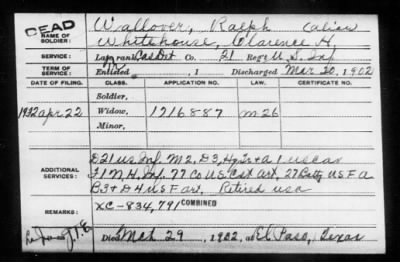 DEAD
NAME OF SOLDIER: Wallover, Ralph (alias
Whitehouse, Clarence H.
SERVICE: Late rank Cas Det Co. 21 Reg't U.S. Inf
TERM OF SERVICE: Enlisted , 1 Discharged Mar 20, 1902
DATE OF FILING. CLASS. APPLICATION NO. LAW. CERTIFICATE NO.
Soldier,
1932 apr 22 Widow, 1716887 M 26
Minor,
ADDITIONAL SERVICES: E 21 US Inf. M 2, D 3, Hq Tr + A 1 US Cav
F 1 N.H. Inf. 77 Co US Cst Art, 27 Batty US F A
B 3 + D 4 US F art. Retired usa
REMARKS: XC-834,791 COMBINED
Died Mch 29, 1922, at El Paso, Texas